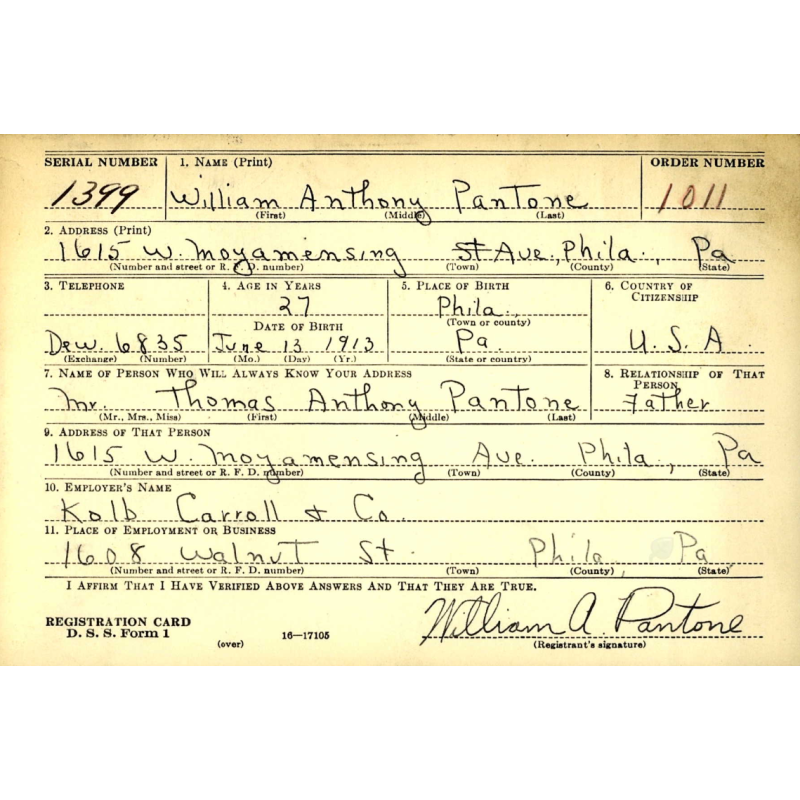 SERIAL NUMBER 1. NAME (Print) ORDER NUMBER
1399 William Anthony Pantone 1011
(First) (Middle) (Last)
2. ADDRESS (Print)
1615 W. Moyamensing St Ave., Phila., Pa
(Number and street or R. F. D. number) (Town) (County) (State)
3. TELEPHONE 4. AGE IN YEARS 5. PLACE OF BIRTH 6. COUNTRY OF CITIZENSHIP
27 Phila.,
DATE OF BIRTH (Town or county)
Dew. 6835 June 13 1913 Pa. U. S. A.
(Exchange) (Number) (Mo.) (Day) (Yr.) (State or country)
7. NAME OF PERSON WHO WILL ALWAYS KNOW YOUR ADDRESS 8. RELATIONSHIP OF THAT PERSON
Mr. Thomas Anthony Pantone Father
(Mr., Mrs., Miss) (First) (Middle) (Last)
9. ADDRESS OF THAT PERSON
1615 W. Moyamensing Ave. Phila., Pa
(Number and street or R. F. D. number) (Town) (County) (State)
10. EMPLOYER'S NAME
Kolb Carroll & Co.
11. PLACE OF EMPLOYMENT OR BUSINESS
1608 Walnut St. Phila, Pa
(Number and street or R. F. D. number) (Town) (County) (State)
I AFFIRM THAT I HAVE VERIFIED ABOVE ANSWERS AND THAT THEY ARE TRUE.
REGISTRATION CARD William A. Pantone
D. S. S. Form 1 16—17105
(over) (Registrant's signature)